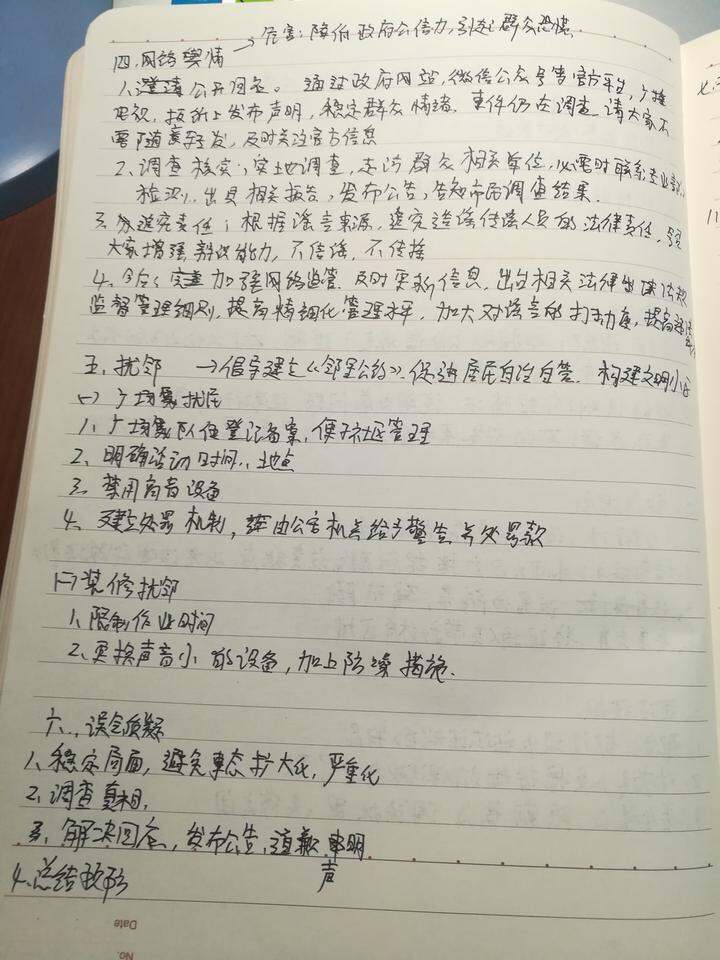 →危害：降低政府公信力，引起群众恐慌
四、网络舆情
1、澄清公开回应。通过政府网站，微信公众号等官方平台，广播
电视，报纸上发布声明，稳定群众情绪。事件仍在调查，请大家不
要随意转发，及时关注官方信息
2、调查核实：实地调查，走访群众相关单位，必要时联系专业
检测，出具相关报告，发布公告，告知市民调查结果.
3、追究责任：根据谣言来源，追究造谣传谣人员的法律责任，号召
大家增强辨识能力，不信谣，不传谣
4、今后：加强网络监管，及时更新信息，出台相关法律法规
监督管理细则，提高精细化管理水平，加大对谣言的打击力度，提高
五、扰邻 →倡导建立《邻里公约》，促进居民自治自管，构建文明小区
(一)广场舞扰民
1、广场舞队伍登记备案，便于社区管理
2、明确活动时间、地点
3、禁用高音设备
4、建立处罚机制，由公安机关给予警告并处罚款
(二)装修扰邻
1、限制作业时间
2、更换声音小的设备，加上防噪措施.
六、误会质疑
1、稳定局面，避免事态扩大化，严重化
2、调查真相.
3、解决回应，发布公告，道歉 声明
4、总结
Date
No.